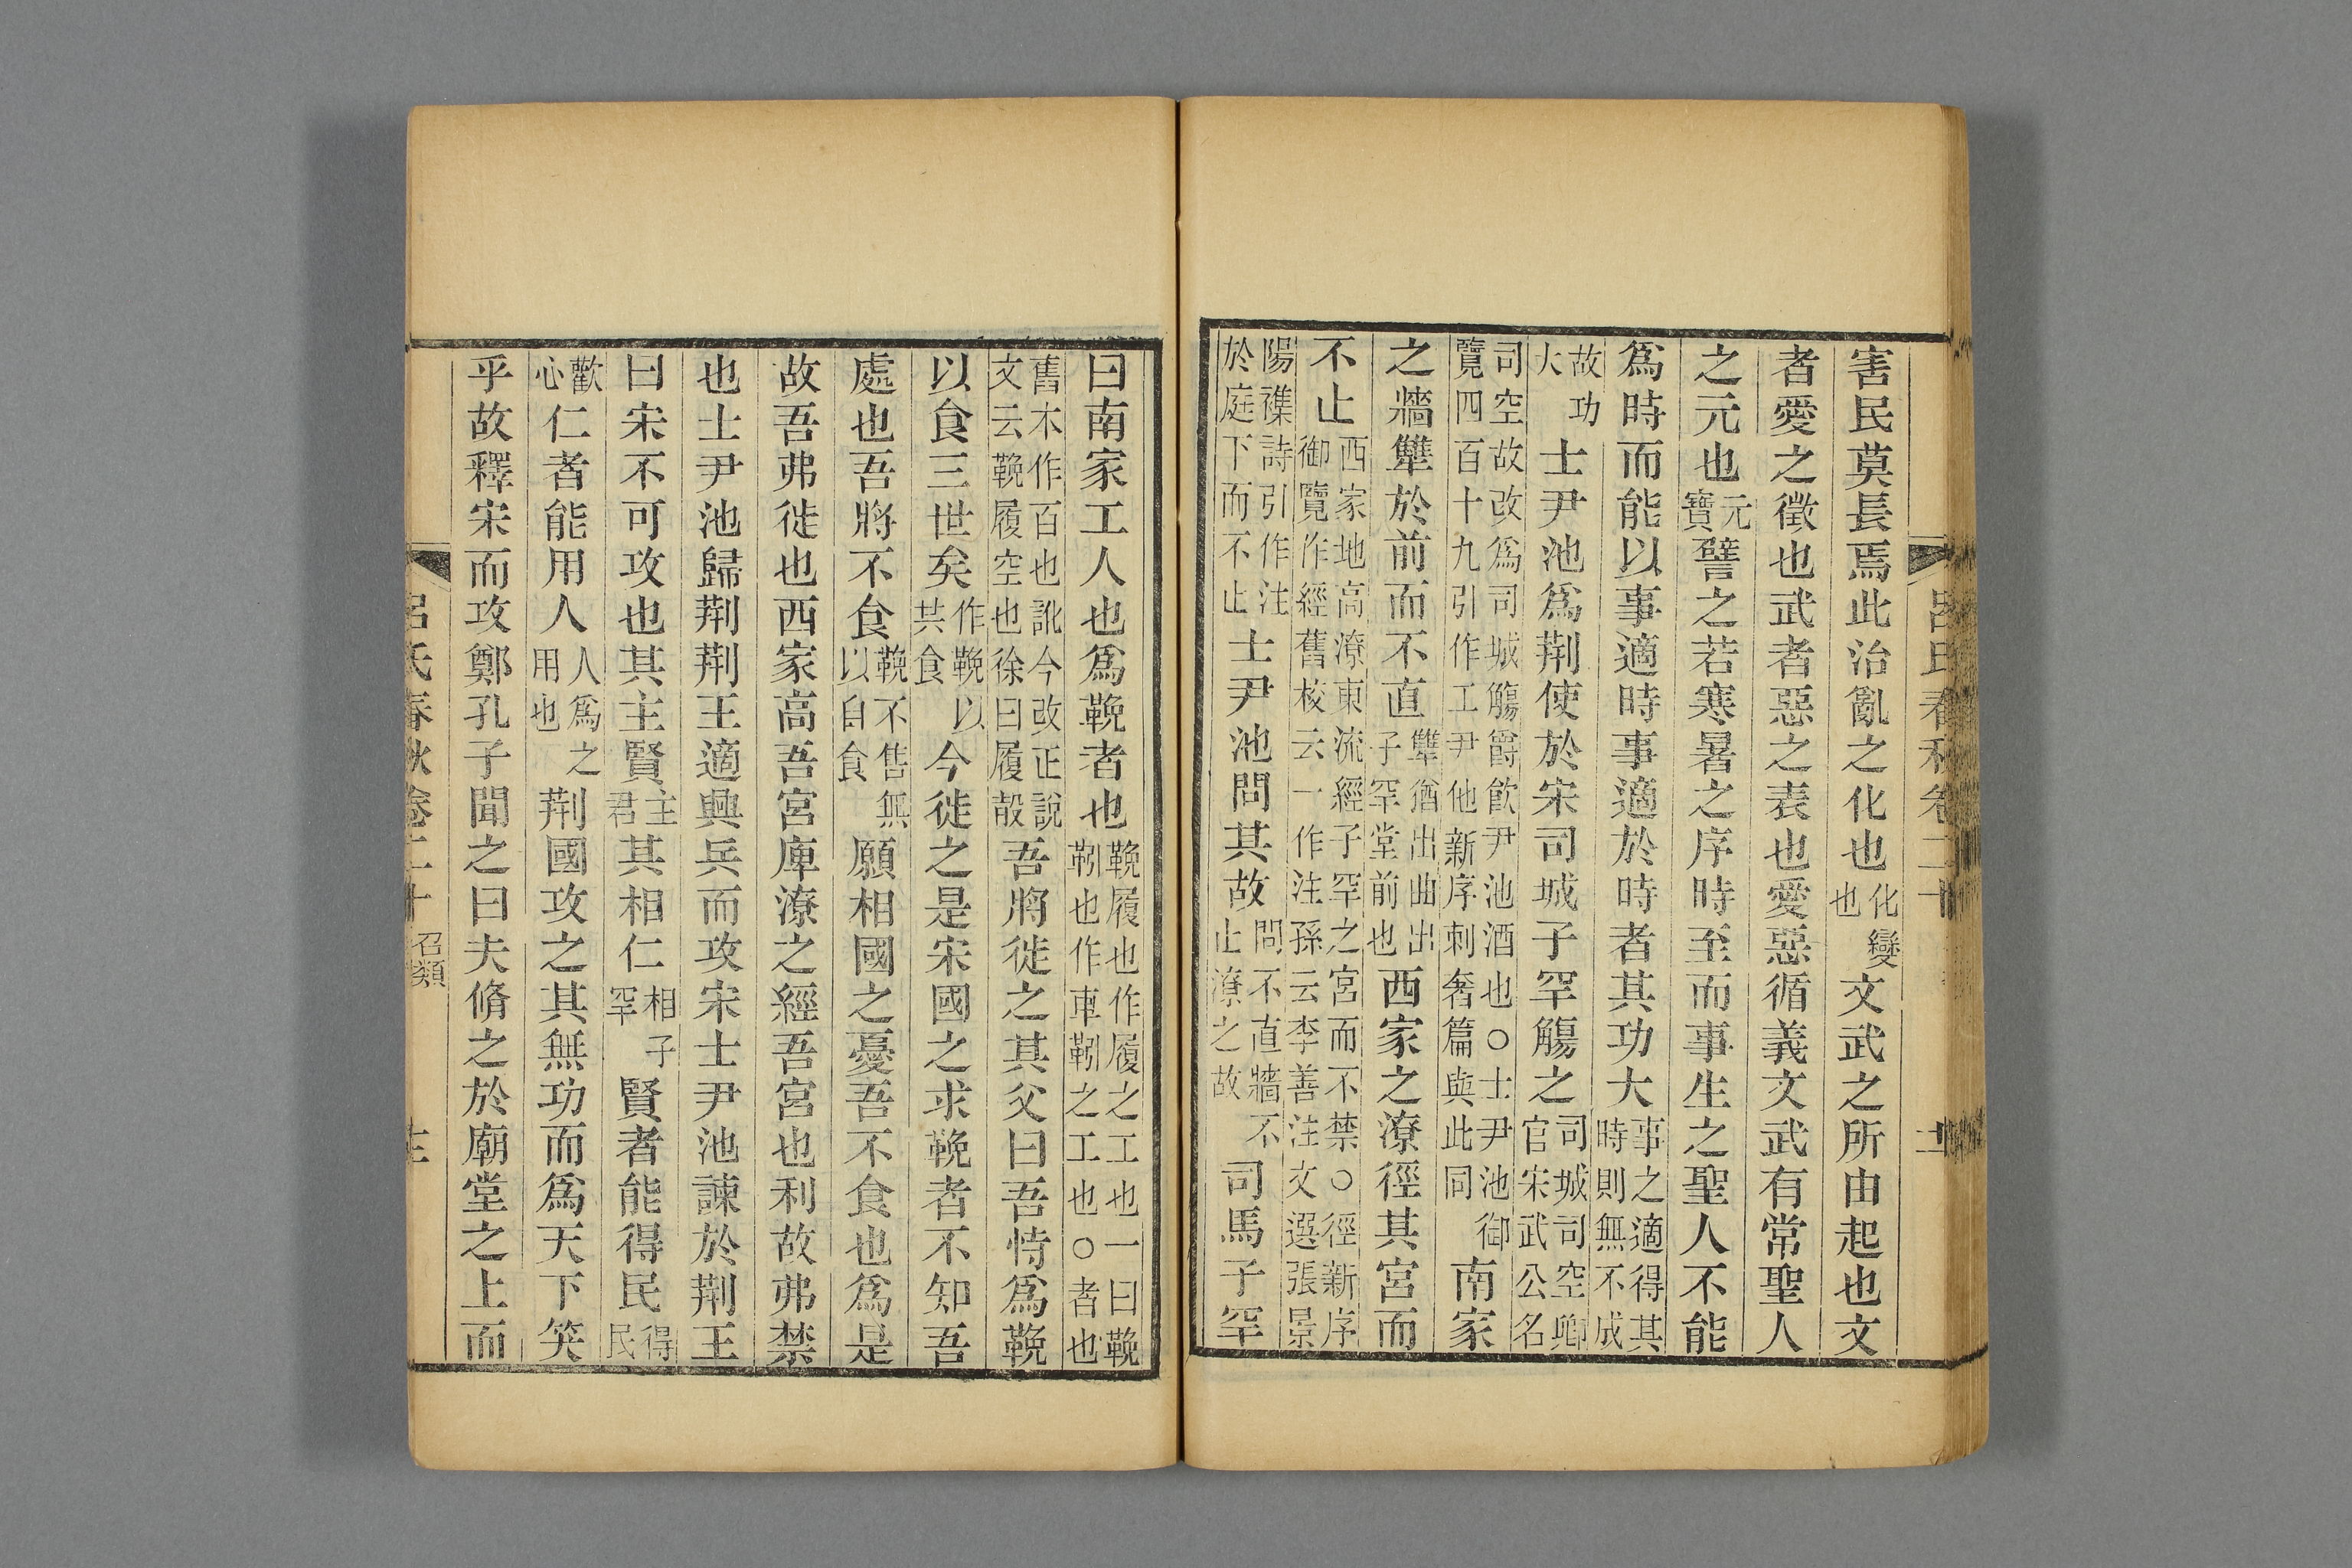 害民莫長焉此治亂之化也化變也文武之所由起也文
者愛之徵也武者惡之表也愛惡循義文武有常聖人
之元也元寶譬之若寒暑之序時至而事生之聖人不能
爲時而能以事適時事適於時者其功大事之適得其時則無不成
故功大士尹池爲荆使於宋司城子罕觴之司城司空卿官宋武公名
司空故改爲司城觴爵飮尹池酒也○士尹池御覽四百十九引作工尹他新序刺奢篇與此同南家
之牆犨於前而不直犨猶出曲出子罕堂前也西家之潦徑其宮而
不止西家地高潦東流經子罕之宮而不禁○徑新序御覽作經舊校云一作注孫云李善注文選張景
陽襍詩引作注於庭下而不止士尹池問其故問不直牆不止潦之故司馬子罕
曰南家工人也爲鞔者也鞔履也作履之工也一曰鞔靷也作車靷之工也○者也
舊本作百也訛今改正說文云鞔履空也徐曰履㲉吾將徙之其父曰吾恃爲鞔
以食三世矣作鞔以共食今徙之是宋國之求鞔者不知吾
處也吾將不食鞔不售無以自食願相國之憂吾不食也爲是
故吾弗徙也西家高吾宮庳潦之經吾宮也利故弗禁
也士尹池歸荆荆王適興兵而攻宋士尹池諫於荆王
曰宋不可攻也其主賢主君其相仁相子罕賢者能得民得民
歡心仁者能用人人爲之用也荆國攻之其無功而爲天下笑
乎故釋宋而攻鄭孔子聞之曰夫脩之於廟堂之上而
呂氏春秋卷二十 召類